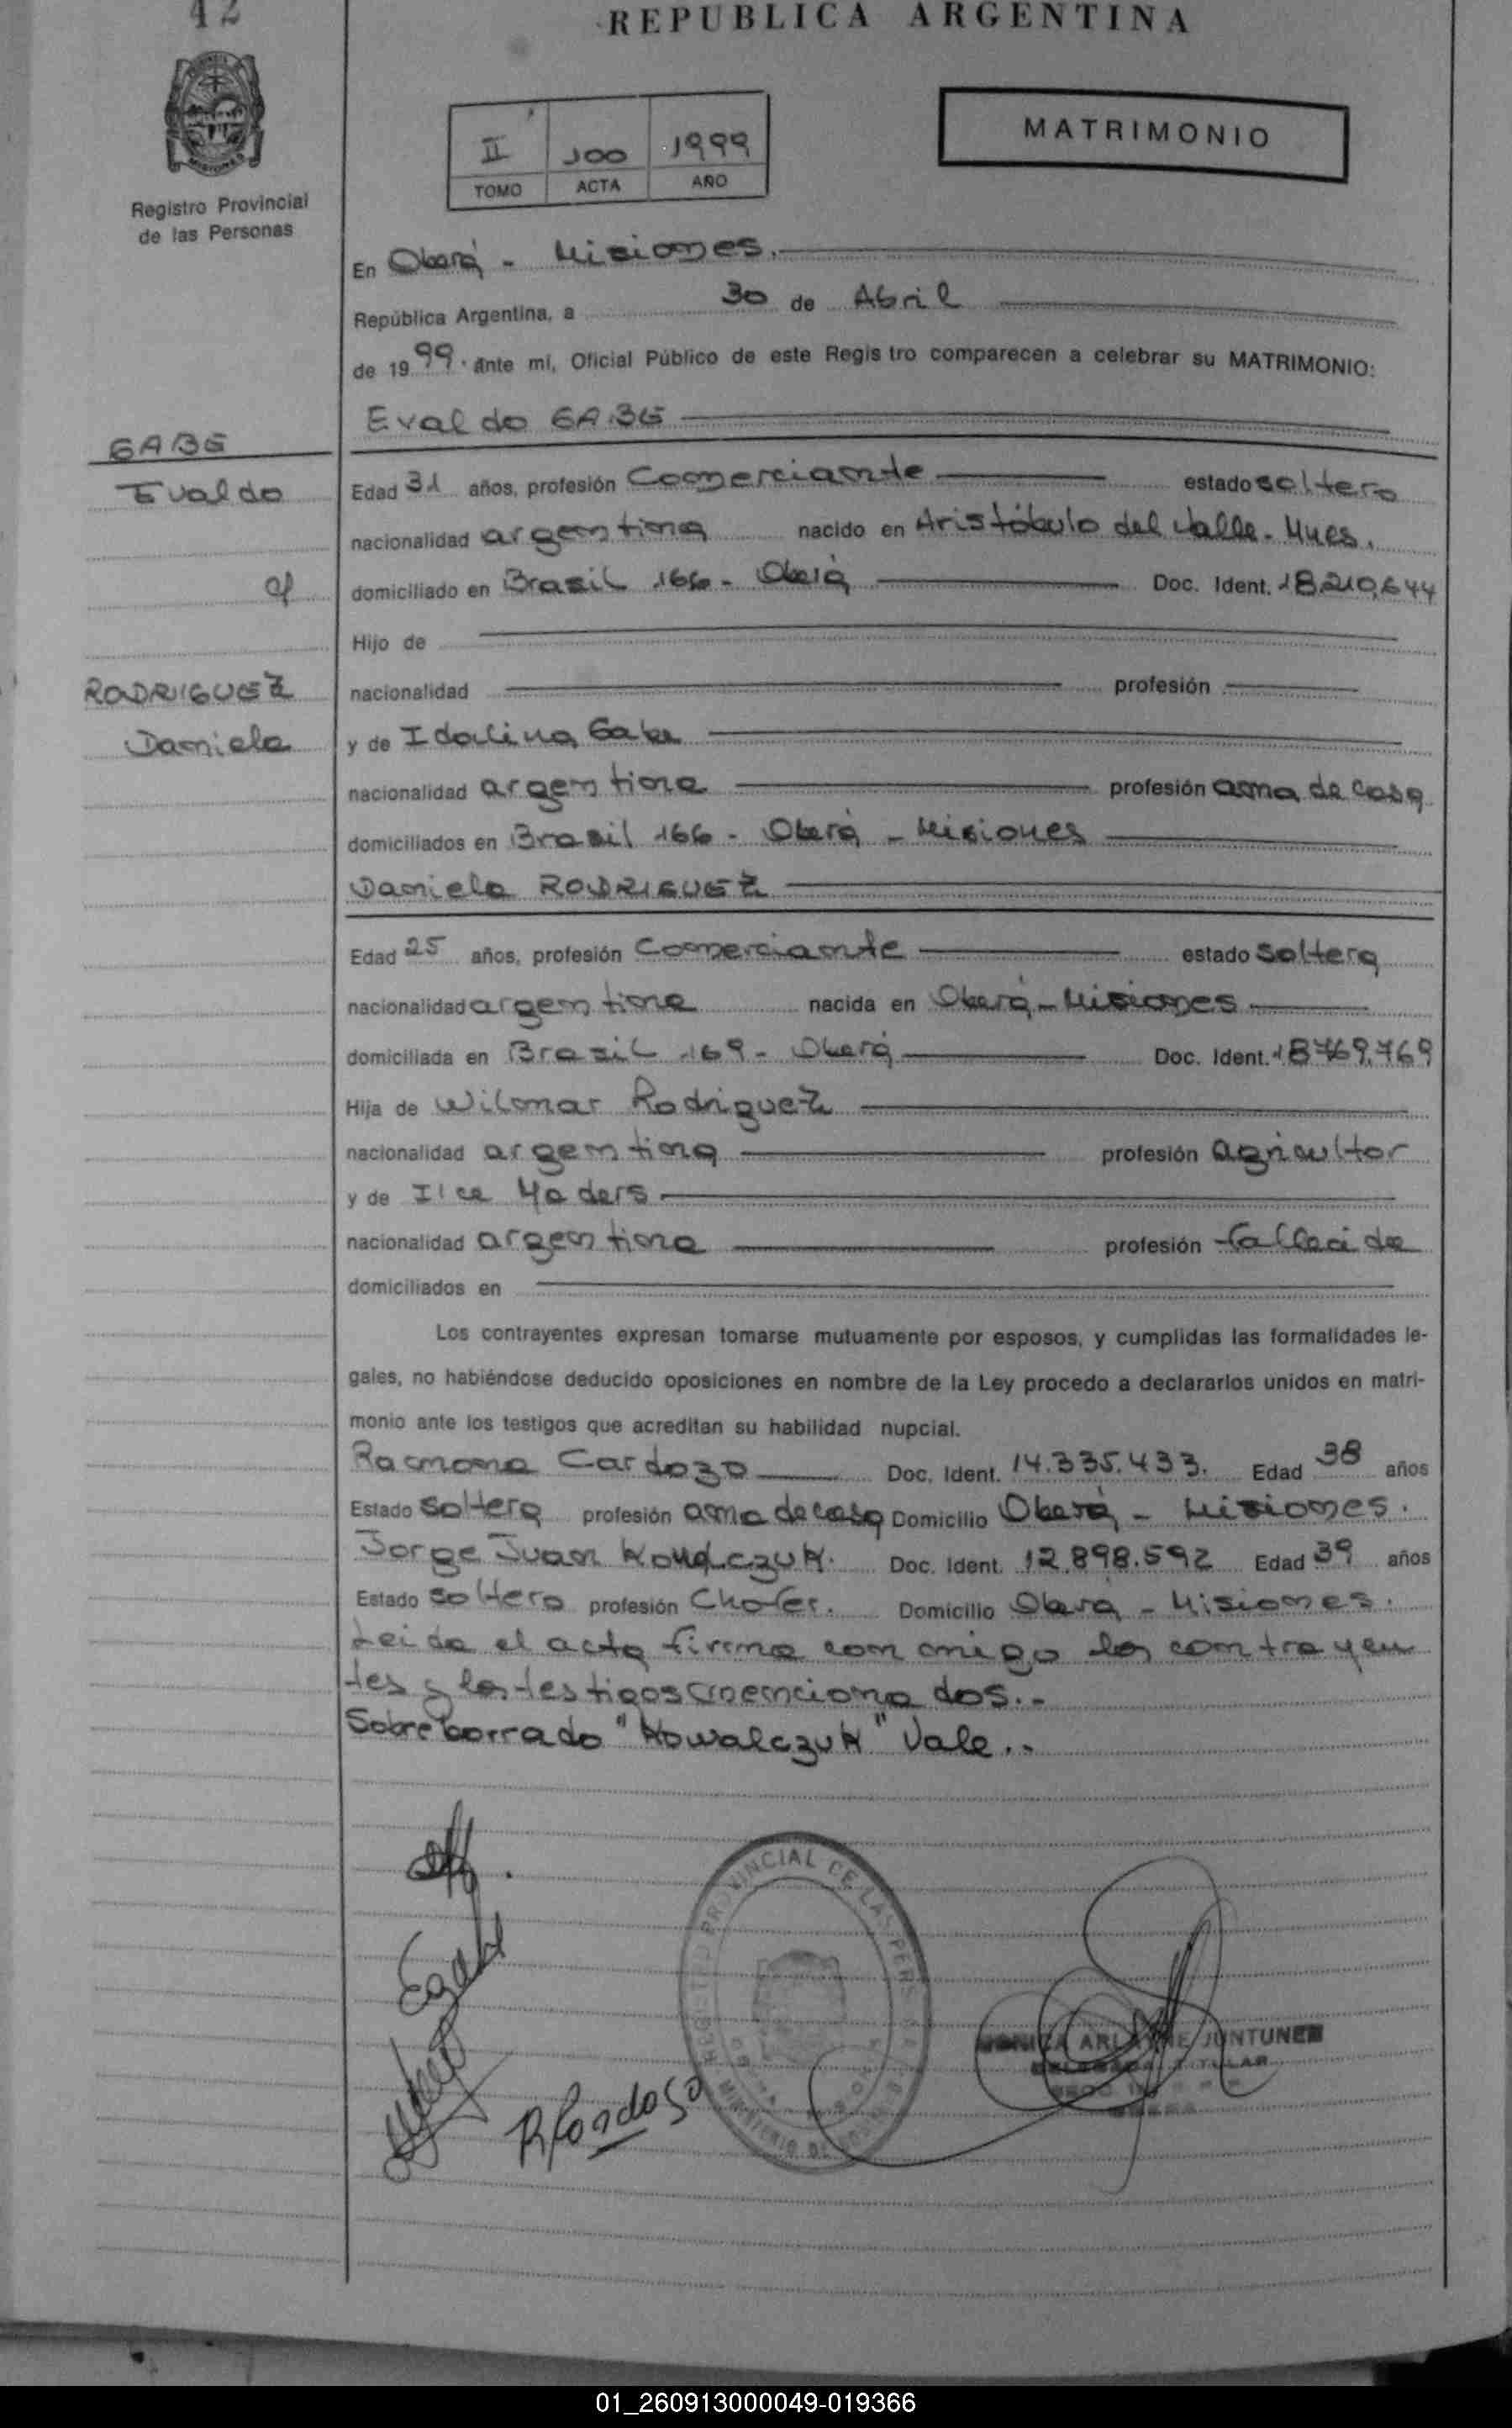 42
REPUBLICA ARGENTINA
II 100 1999
TOMO ACTA AÑO
MATRIMONIO
Registro Provincial
de las Personas
En Oberá - Misiones.
República Argentina, a 30 de Abril
de 1999. ante mi, Oficial Público de este Regis tro comparecen a celebrar su MATRIMONIO:
Evaldo GABE
GABE
Evaldo
c/
RODRIGUEZ
Daniela
Edad 31 años, profesión Comerciante estado soltero
nacionalidad argentina nacido en Aristóbulo del Valle - Mnes.
domiciliado en Brasil 166 - Oberá Doc. Ident. 18.210.644
Hijo de
nacionalidad profesión
y de Idalina Gabe
nacionalidad argentina profesión ama de casa
domiciliados en Brasil 166 - Oberá - Misiones
Daniela RODRIGUEZ
Edad 25 años, profesión Comerciante estado soltera
nacionalidad argentina nacida en Oberá - Misiones
domiciliada en Brasil 169 - Oberá Doc. Ident. 18.769.769
Hija de Wilmar Rodriguez
nacionalidad argentina profesión agricultor
y de Ilce Maders
nacionalidad argentina profesión fallecida
domiciliados en
Los contrayentes expresan tomarse mutuamente por esposos, y cumplidas las formalidades le-
gales, no habiéndose deducido oposiciones en nombre de la Ley procedo a declararlos unidos en matri-
monio ante los testigos que acreditan su habilidad nupcial.
Ramona Cardozo Doc. Ident. 14.335.433. Edad 38 años
Estado soltera profesión ama de casa Domicilio Oberá - Misiones.
Jorge Juan Kowalczuk. Doc. Ident. 12.898.592 Edad 39 años
Estado soltero profesión Chofer. Domicilio Oberá - Misiones.
Leida el acta firma conmigo los contrayen
tes y los testigos mencionados.-
Sobre borrado "Kowalczuk" Vale..
R Cardoso
REGISTRO PROVINCIAL DE LAS PERSONAS
MONICA ARLA JUNTUNEN
DELEGADA TITULAR
01_260913000049-019366